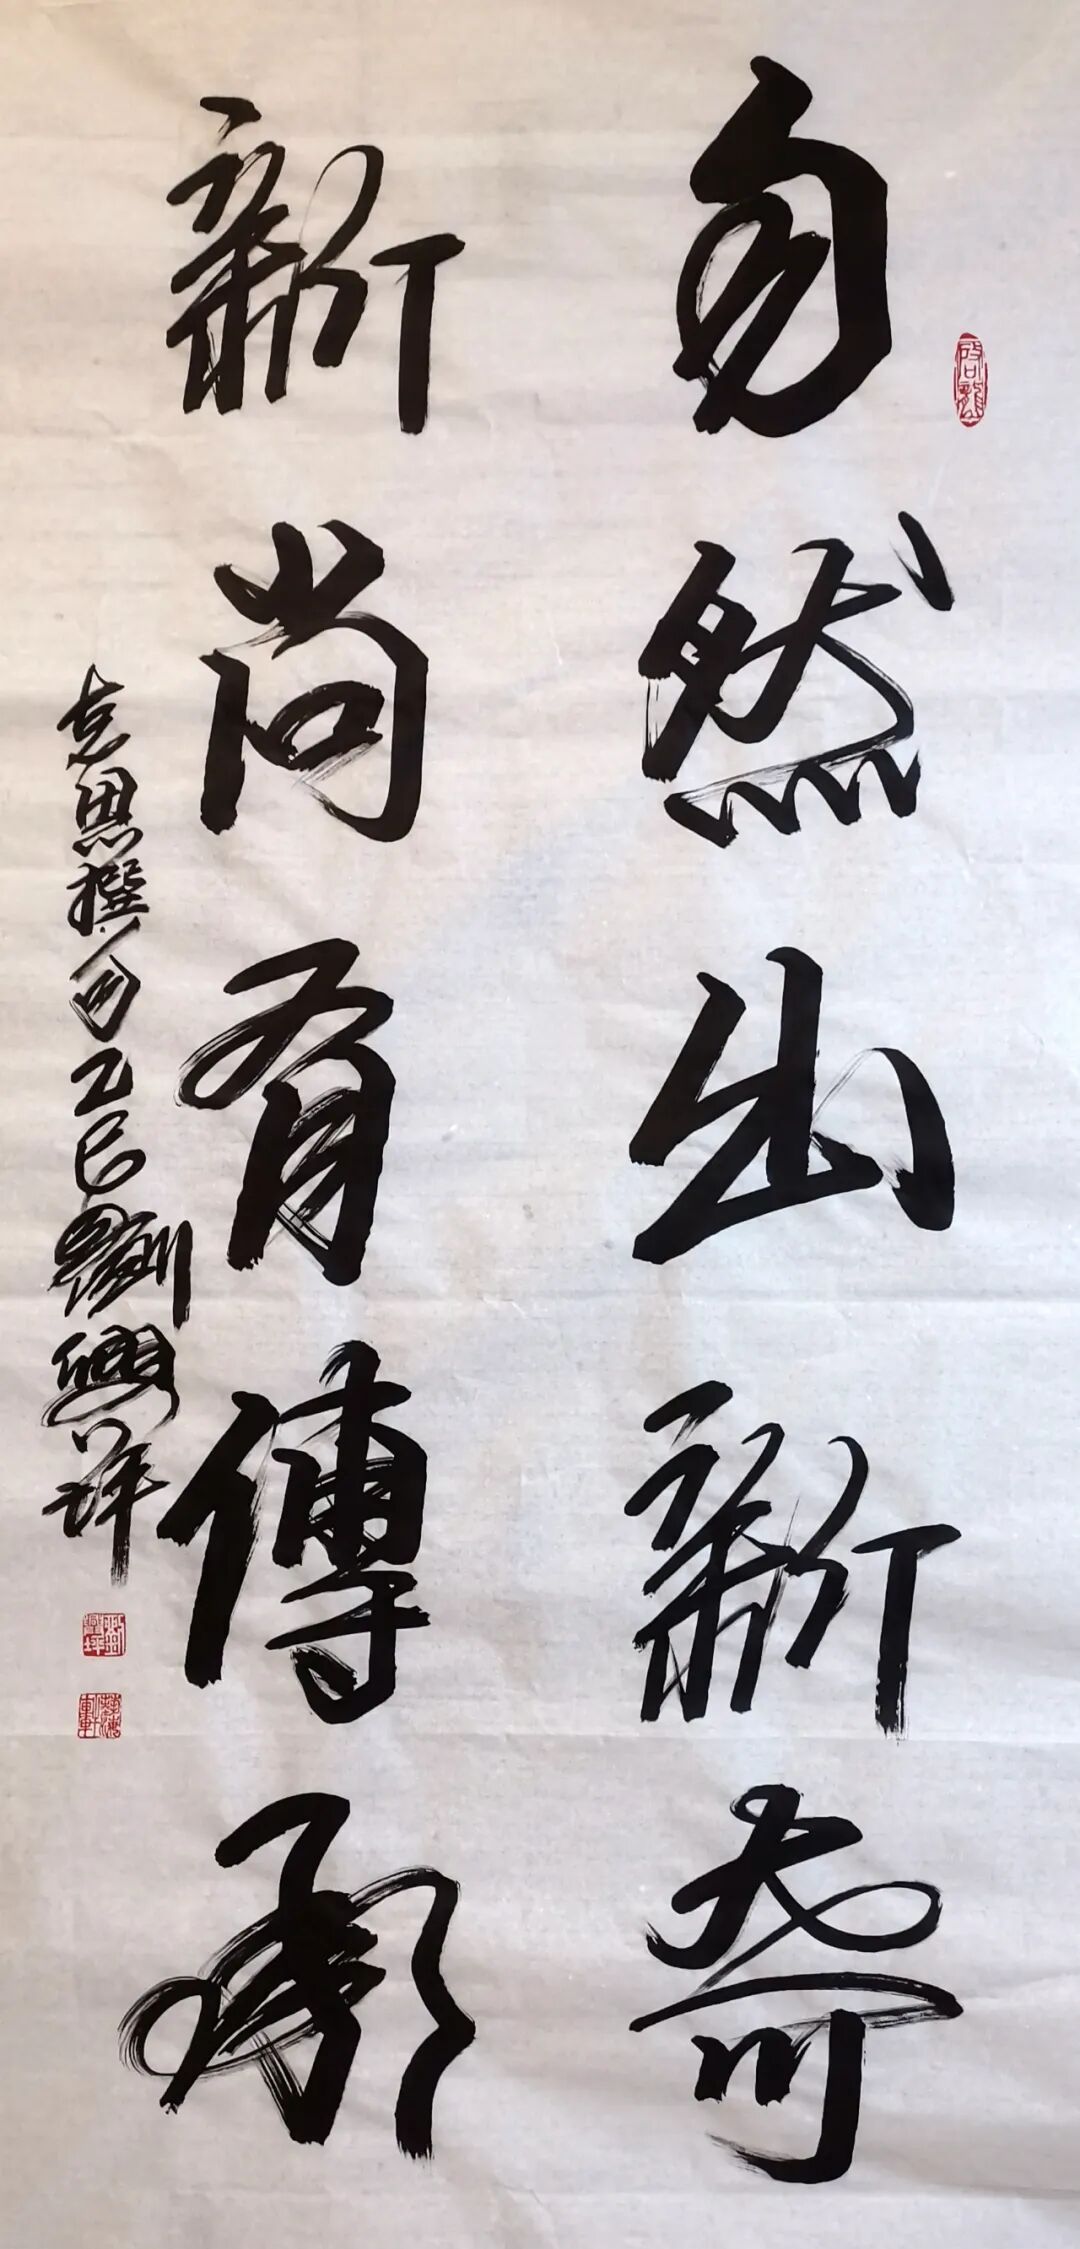 自然出新奇
新尚有傳承
克思撰句乙巳劉興